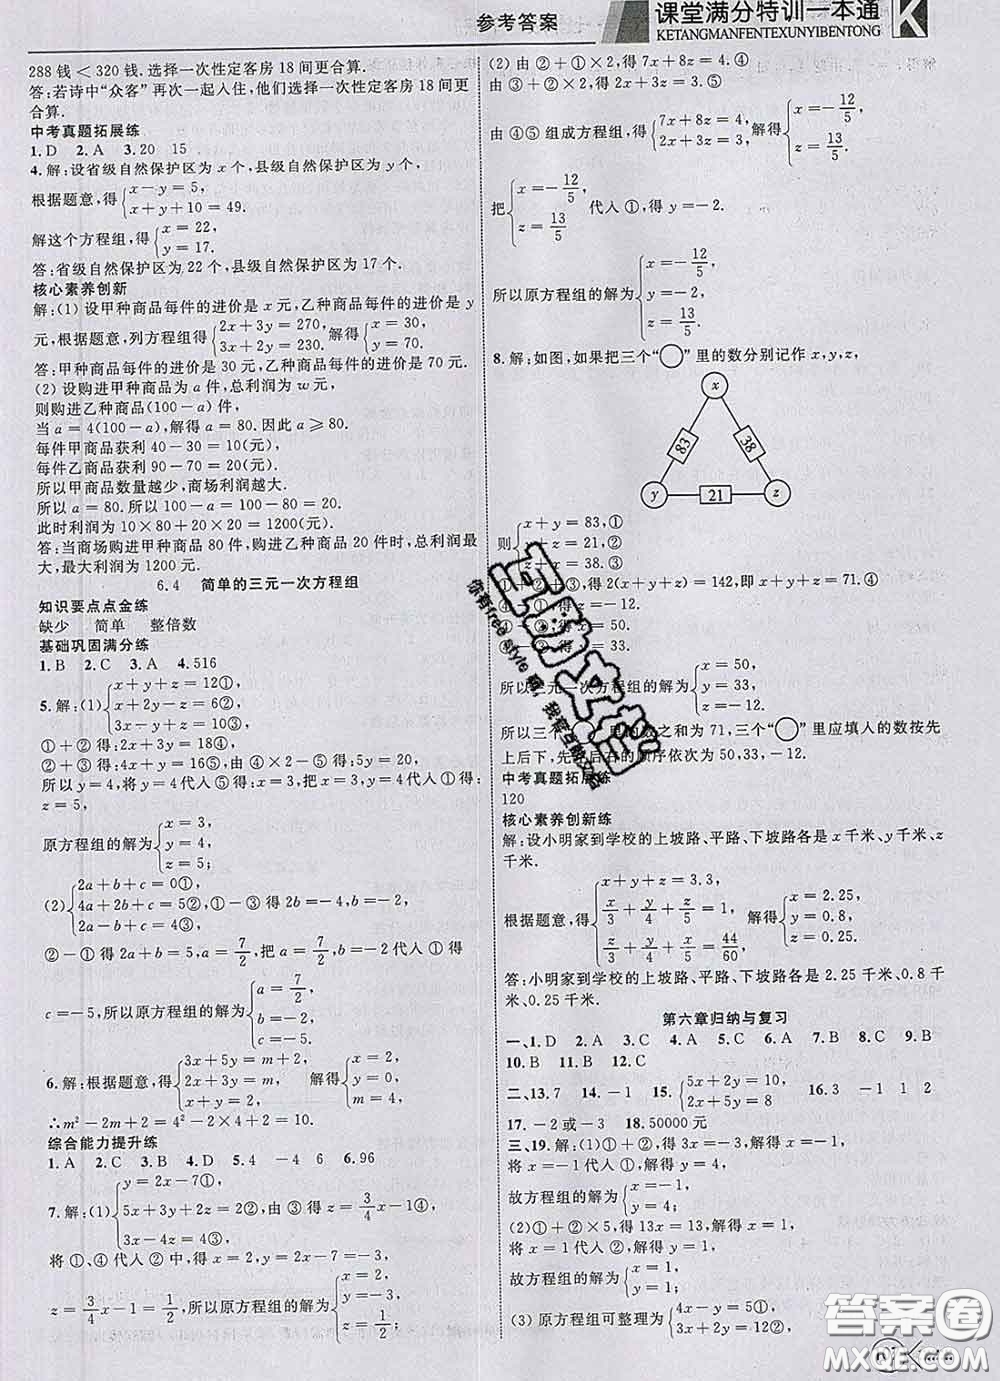 参考答案
课堂满分特训一本通
KETANGMANFENTEXUNYIBENTONG
K
288 钱＜320 钱. 选择一次性定客房 18 间更合算.
答:若诗中“众客”再次一起入住,他们选择一次性定客房 18 间更
合算.
中考真题拓展练
1. D  2. A  3. 20  15
4. 解:设省级自然保护区为 x 个,县级自然保护区为 y 个,
根据题意,得{x－y＝5, x＋y＋10＝49.
解这个方程组,得{x＝22, y＝17.
答:省级自然保护区为 22 个,县级自然保护区为 17 个.
核心素养创新
解:(1) 设甲种商品每件的进价是 x 元,乙种商品每件的进价是 y
元,根据题意,列方程组得{2x＋3y＝270, 3x＋2y＝230. 解得{x＝30, y＝70.
答:甲种商品每件的进价是 30 元,乙种商品每件的进价是 70 元.
(2) 设购进甲种商品为 a 件,总利润为 w 元,
则购进乙种商品(100－a) 件,
当 a＝4(100－a),解得 a＝80. 因此 a≥80.
每件甲商品获利 40－30＝10(元).
每件乙商品获利 90－70＝20(元).
所以甲商品数量越少,商场利润越大.
所以 a＝80. 所以 100－a＝20.
此时利润为 10×80＋20×20＝1200(元).
答:当商场购进甲种商品 80 件,购进乙种商品 20 件时,总利润最
大,最大利润为 1200 元.
6.4 简单的三元一次方程组
知识要点点金练
缺少  简单  整倍数
基础巩固满分练
1. B  2. C  3. A  4. 516
5. 解:(1){x＋y＋z＝12①, x＋2y－z＝6②, 3x－y＋z＝10③,
①＋②得:2x＋3y＝18④,
②＋③得:4x＋y＝16⑤,由④×2－⑤得:5y＝20,
所以 y＝4,将 y＝4 代入⑤得:x＝3,把 x＝3,y＝4 代入①得:
z＝5,
原方程组的解为{x＝3, y＝4, z＝5;
(2){2a＋b＋c＝0①, 4a＋2b＋c＝5②, 2a－b＋c＝4③, ①－③得 2b＝－4,b＝－2,
②－①得 2a＋b＝5,a＝7/2,把 a＝7/2,b＝－2 代入①得
c＝－5,所以原方程组的解为{a＝7/2, b＝－2, c＝－5.
6. 解:根据题意,得{3x＋5y＝m＋2, 2x＋3y＝m, x＋y＝2, 解得{x＝2, y＝0, m＝4,
∴m²－2m＋2＝4²－2×4＋2＝10.
综合能力提升练
1. A  2. C  3. D  4. D  5. 4  －4  6  6. 96
7. 解:(1){y＝2x－7①, 5x＋3y＋2z＝2②, 3x－4z＝4③, 由③得:z＝3/4x－1④
将①、④代入②中,得 x＝2,y＝2x－7＝－3,
z＝3/4x－1＝1/2,所以原方程组的解为{x＝2, y＝－3, z＝1/2.
(2) 由②＋①×2,得 7x＋8z＝4.④
由③＋②×2,得 2x＋3z＝3.⑤
由④⑤组成方程组,得{7x＋8z＝4, 2x＋3z＝3, 解得{x＝－12/5, z＝13/5.
把{x＝－12/5, z＝13/5 代入①,得 y＝－2.
所以原方程组的解为{x＝－12/5, y＝－2, z＝13/5.
8. 解:如图,如果把三个“○”里的数分别记作 x,y,z,
x
83  38
y  21  z
则{x＋y＝83,① y＋z＝21,② z＋x＝38.③
①＋②＋③,得 2(x＋y＋z)＝142,即 x＋y＋z＝71.④
④－①,得 z＝－12.
④－②,得 x＝50.
④－③,得 y＝33.
所以三元一次方程组的解为{x＝50, y＝33, z＝－12.
所以三个○里的数之和为 71,三个“○”里应填入的数按先
上后下,先左后右的顺序依次为 50,33,－12.
中考真题拓展练
120
核心素养创新练
解:设小明家到学校的上坡路、平路、下坡路各是 x 千米、y 千米、z
千米.
根据题意,得{x＋y＋z＝3.3, x/3＋y/4＋z/5＝1, z/3＋y/4＋x/5＝44/60 解得{x＝2.25, y＝0.8, z＝0.25.
答:小明家到学校的上坡路、平路、下坡路各是 2.25 千米、0.8 千
米、0.25 千米.
第六章归纳与复习
一、1. D  2. A  3. C  4. A  5. A  6. C  7. B  8. C  9. B
10. B  11. B  12. C
二、13. 7  14. －1  15. {5x＋2y＝10, 2x＋5y＝8  16. 3  －1  1  2
17. －2 或－3  18. 50000 元
三、19. 解:(1)①＋②,得 3x＝－3,解得 x＝－1,
将 x＝－1 代入①,得
故方程组的解为{x＝－1,
(2)①＋②×5,得 13x＝13,解得 x＝1,
将 x＝1 代入②,
故方程组的解为{x＝1, y＝1;
(3) 原方程组可整理为{4x－y＝5①, 3x＋2y＝12②,
互助文库
你有free style 嘛，我有互助文库
答案圈
MXQE.COM